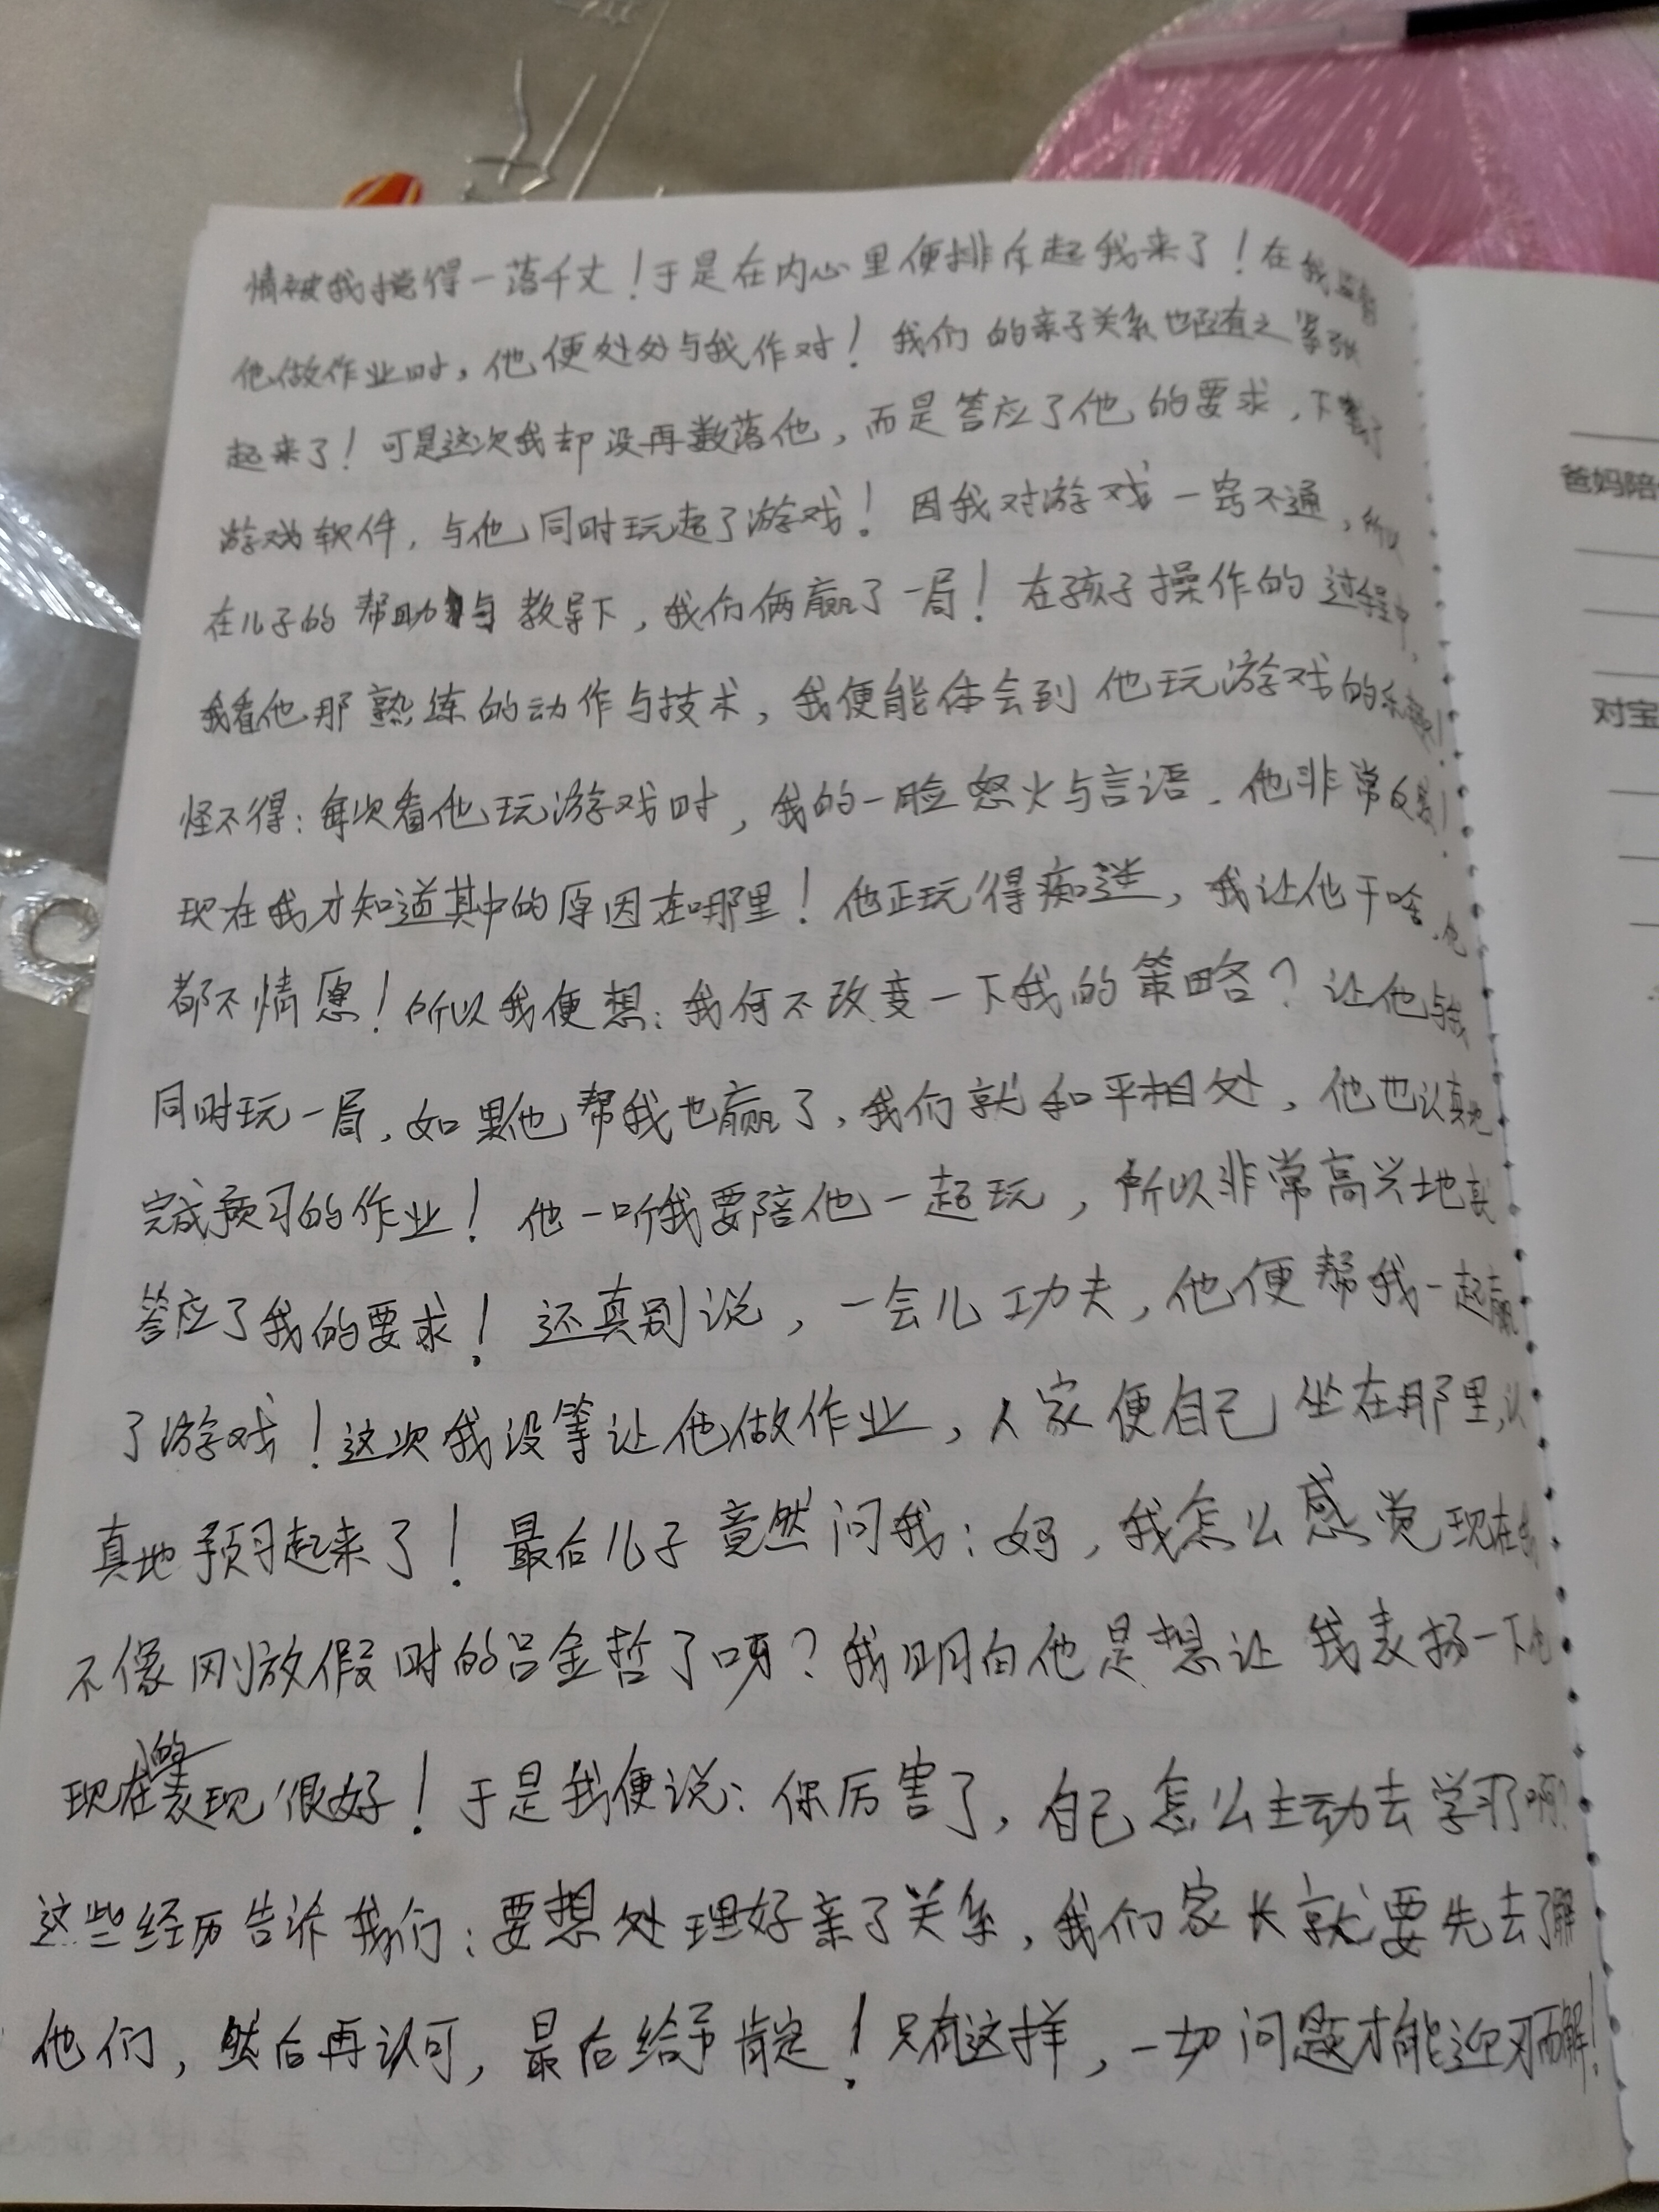 情被我搅得一落千丈！于是在内心里便排斥起我来了！在我监督
他做作业时，他便处处与我作对！我们的亲子关系也随之紧张
起来了！可是这次我却没再数落他，而是答应了他的要求，下载了
游戏软件，与他同时玩起了游戏！因我对游戏一窍不通，所以
在儿子的帮助与教导下，我们俩赢了一局！在孩子操作的过程中，
我看他那熟练的动作与技术，我便能体会到他玩游戏的乐趣！
怪不得：每次看他玩游戏时，我的一脸怒火与言语，他非常反感！
现在我才知道其中的原因在哪里！他正玩得痴迷，我让他干啥，他
都不情愿！所以我便想：我何不改变一下我的策略？让他与我
同时玩一局，如果他帮我也赢了，我们就和平相处，他也认真地
完成预习的作业！他一听我要陪他一起玩，所以非常高兴地
答应了我的要求！还真别说，一会儿工功夫，他便帮我一起赢
了游戏！这次我没等让他做作业，人家便自己坐在那里，认
真地预习起来了！最后儿子竟然问我：妈，我怎么感觉现在我
不像刚放假时的吕金哲了呀？我明白他是想让我表扬一下他
现在的表现很好！于是我便说：你厉害了，自己怎么主动去学习了啊？
这些经历告诉我们：要想处理好亲子关系，我们家长就要先去了解
他们，然后再认可，最后给予肯定！只有这样，一切问题才能迎刃而解！
爸妈陪
对宝